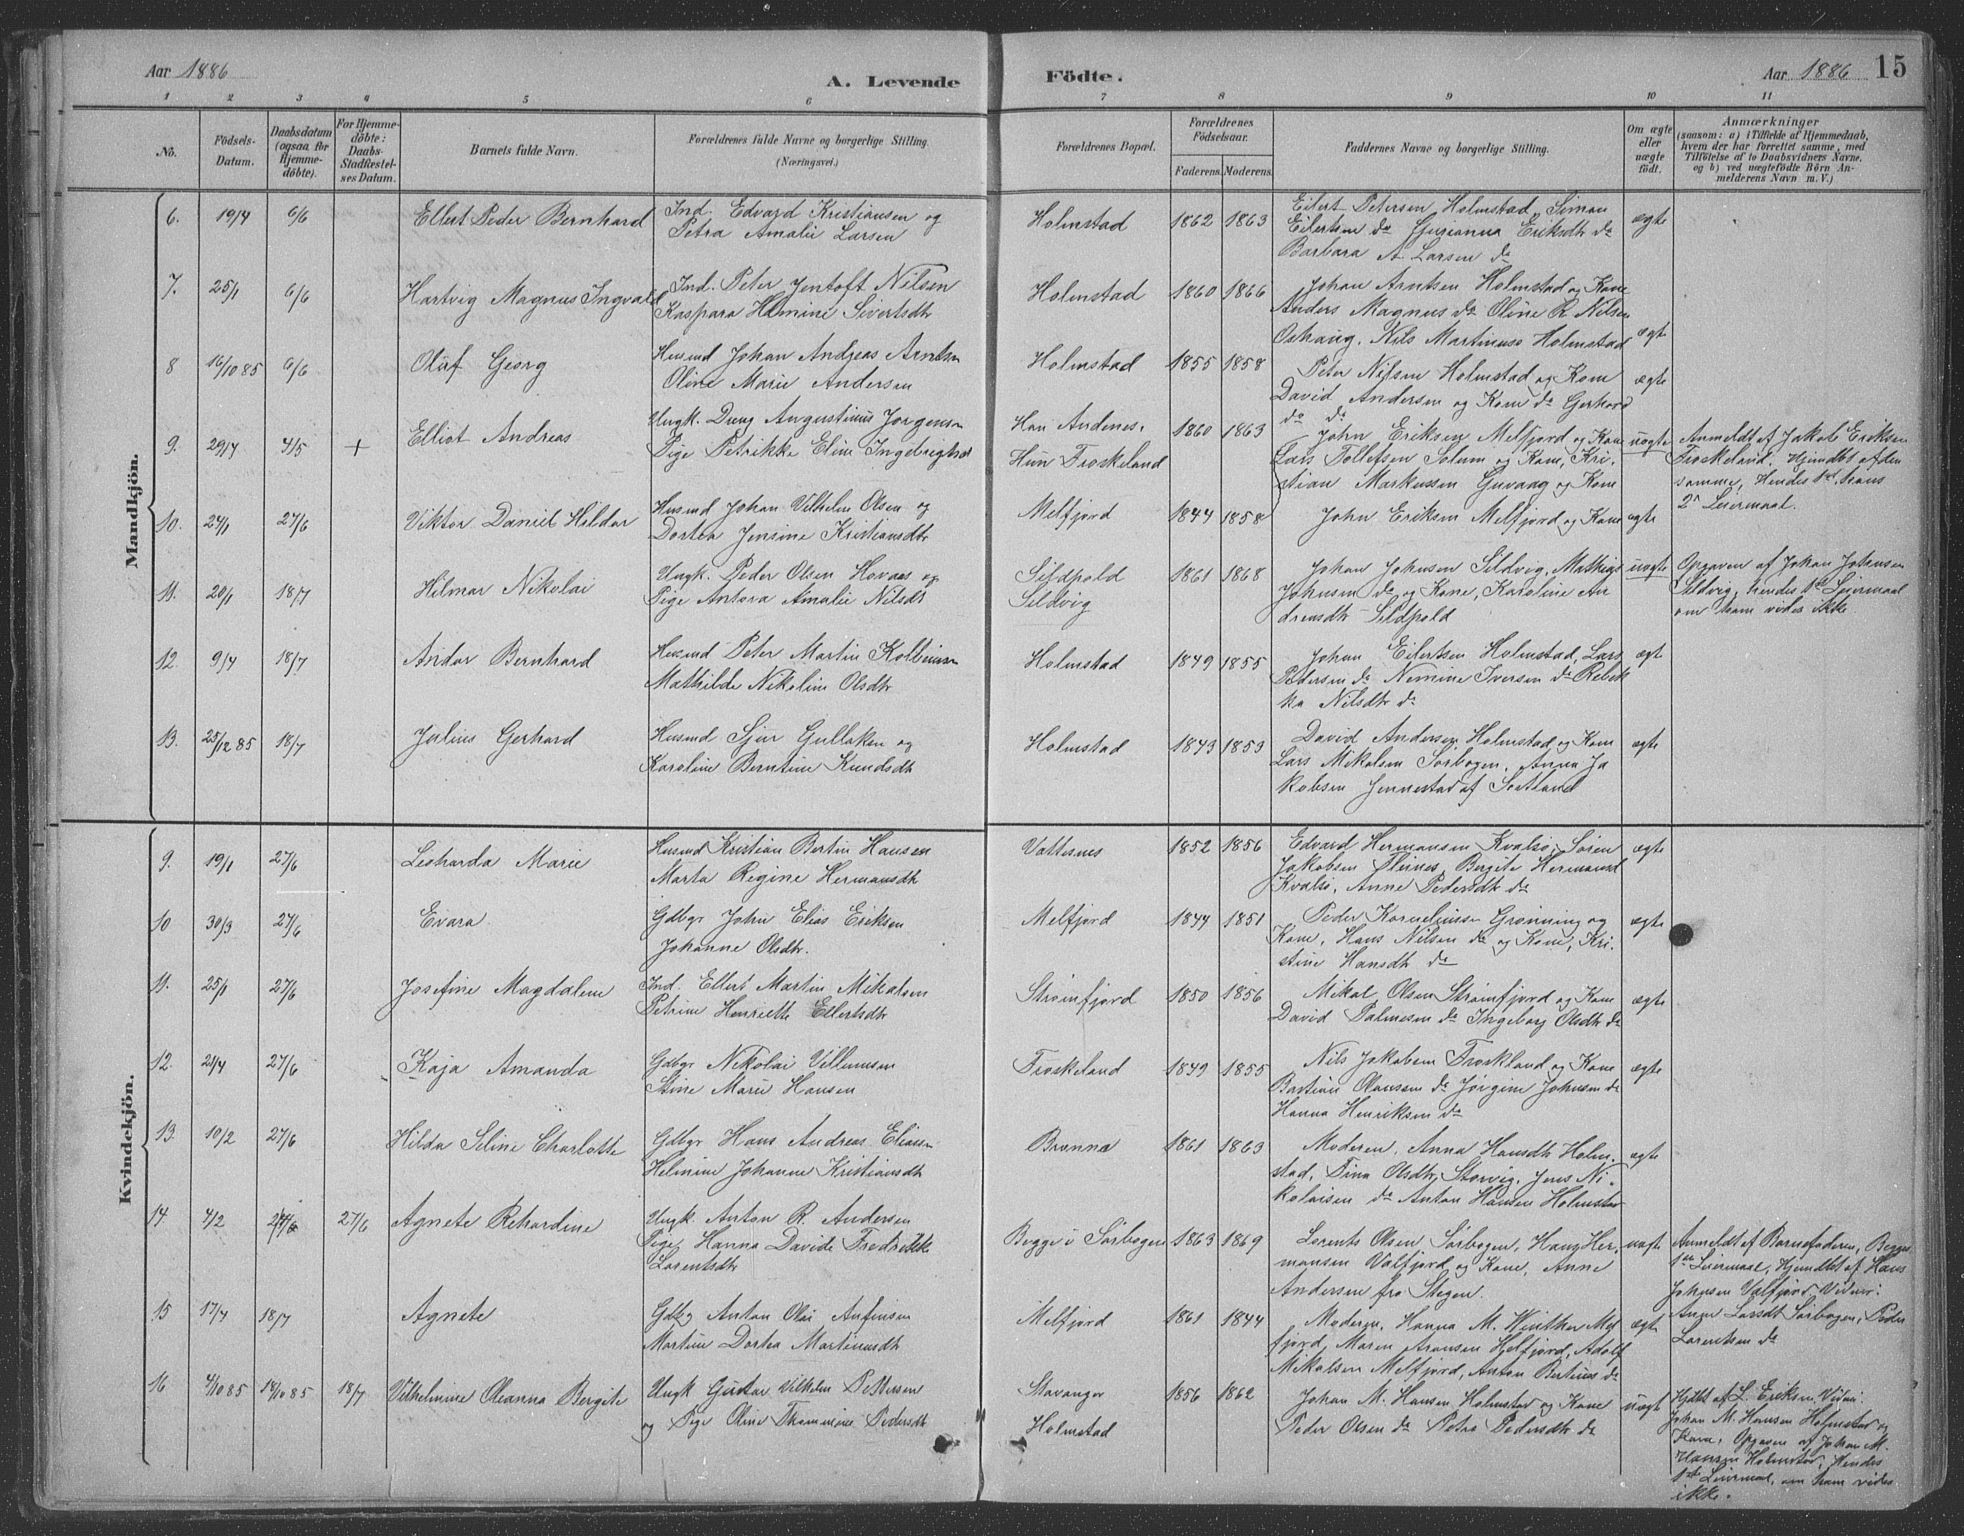 Aar 1886
A. Levende
Födte.
Aar 1886
15
1 2 3 4 5 6 7 8 9 10 11
No.
Födsels-
Datum.
Daabsdatum
(ogsaa for
Hjemme-
döbte).
For Hjemme-
döbte:
Daabs-
Stadfæstel-
ses Datum.
Barnets fulde Navn.
Forældrenes fulde Navne og borgerlige Stilling.
(Næringsvei.)
Forældrenes Bopæl.
Forældrenes
Födselsaar.
Faderens. Moderens.
Faddernes Navne og borgerlige Stilling.
Om ægte
eller
uægte
födt.
Anmærkninger
(saasom: a) i Tilfælde af Hjemmedaab,
hvem der har forrettet samme, med
Tilföielse af to Daabsvidners Navne,
og b) ved uægtefödte Börn An-
melderens Navn m. V.)
Mandkjön.
6. 19/4 6/6 Ellert Peder Bernhard
Ind. Edvard Kristiansen og
Petra Amalie Larsen
Holmstad 1862 1863
Eilert Petersen Holmstad, Simon
Eilertsen do Eriksdtr do
Barbara A Larsen do
ægte
7. 25/1 6/6 Hartvig Magnus Ingvald
Ind. Peter Jentoft Nilsen
Kaspara Hamine Sivertsdtr
Holmstad 1860 1866
Johan Arntsen Holmstad og Kone
Anders Magnus do Oline R. Nilsen
Oshaug, Nils Martinuss Holmstad
ægte
8 16/10 85 6/6 Olaf Georg
Husmd Johan Andreas Arntsen
Oline Marie Andersen
Holmstad 1855 1858
Peter Nilsen Holmstad og Kone
David Andersen og Kone do Gerhard
do do
ægte
9. 29/4 4/5 + Elliot Andreas
Ungk. Augustinus Jorgensen
Pige Petrikke Eline Ingebrigtsd
Han Andenes,
Hun Froskeland
1860 1863
John Eriksen Melfjord og Kone
Lars Tollefsen Solum og Kone, Kri-
stian Markussen Guvaag og Kone
uægte
Anmeldt af Jakob Eriksen
Froskeland. Hjemdbt af den
samme, Hendes 1st, hans
2t Leiermaal.
10. 24/1 27/6 Viktor Daniel Haldor
Husmd Johan Vilhelm Olsen og
Dortea Jensine Kristiansdtr
Melfjord 1844 1858
John Eriksen Melfjord og Kone
ægte
11. 20/1 18/7 Hilmar Nikolai
Ungk. Peder Olsen Hovaas og
Pige Antora Amalie Nilsdt
Sildpold
Sildvig
1861 1868
Johan Johnsen Sildvig, Mathias
Johnsen do og Kone, Karoline An
drensdtr Sildpold
uægte
Opgaven af Johan Johnsen
Sildvig, hendes 1st Leiermaal
om ham vides ikke
12. 9/4 18/7 Andor Bernhard
Husmd Peter Martin Kolbeinsen
Mathilde Nikoline Olsdtr
Holmstad 1849 1855
Johan Eilertsen Holmstad, Lars
Pedersen do Nemine Iversen do Rebek
ka Nilsdtr do
ægte
13. 25/12 85 18/7 Julius Gerhard
Husmd Sjur Gullaksen og
Karoline Berntine Knudsdtr
Holmstad 1843 1853
David Andersen Holmstad og Kone
Lars Mikalsen Sorbogen, Anna Ja
kobsen Jennestad af Sortland
ægte
Kvindekjön.
9. 19/1 27/6 Leonarda Marie
Husmd Kristian Bertin Hansen
Marta Regine Hermansdtr
Vottesnes 1852 1856
Edvard Hermansen Kvalsø, Søren
Jakobsen Bergite Hermansd
Kvalsø, Anne Pedersdtr do
ægte
10 30/3 27/6 Evara
Gdbgr John Elias Eriksen
Johanne Olsdtr.
Melfjord 1844 1851
Peder Korneliussen Grønning og
Kone, Hans Nilsen do og Kone, Kri-
stine Hansdtr do
ægte
11. 25/1 27/6 Josefine Magdalene
Ind. Ellert Martin Mikalsen
Petrine Henriette Ellertsdtr
Strømfjord 1850 1856
Mikal Olsen Strømfjord og Kone
David Palmesen do Ingeborg Olsdtr do
ægte
12. 21/4 27/6 Kaja Amanda
Gdbgr Nikolai Villumsen
Stine Marie Hansen
Froskeland 1849 1855
Nils Jakobsen Froskland og Kone
Bastian Olaussen do Jørgine Johnsen do
Hanna Henriksen do
ægte
13. 10/2 27/6 Hilda Seline Charlotte
Gdbgr Hans Andreas Eliassen
Helmine Johanne Kristiansdtr
Brønna 1861 1863
Moderen, Anna Hansdtr Holm-
stad, Tina Olsdtr Storvig, Jens Ni-
kolaisen do Anton Hansen Holmstad
ægte
14. 4/2 27/6 Agnete Rekardine
Ungk. Anton R. Andersen
Pige, Hanna Davide Fredrikke
Lorentsdtr
Begge i Sørbogen 1863 1869
Lorents Olsen Sørbogen, Hans Her-
mansen Valfjord og Kone, Anne
Andersen fra Stegen.
uægte
Anmeldt af Barnefaderen, Begges
1ste Leiermaal, Hjemdbt af Hans
Johnsen Valfjord, Vidner:
Anne Larsdt Sørbogen, Peder
Lorentsen do
15 17/4 18/7 Agnete
Gdbg Anton Olai Anfinsen
Martine Dortea Martinusdtr
Melfjord 1861 1844
Moderen, Hanna M. Winther Mel
fjord, Maren Aronsen Melfjord, Adolf
Mikalsen Melfjord, Anton Berteus do
ægte
16 4/10 85 14/10 85 18/7 Vilhelmine Oleanna Bergite
Ungk Gustav Vilhelm Pettersen
og Pige Oline Thommine Pedersdtr
Stavanger
Holmstad
1856 1862
Johan M. Hansen Holmstad og Kone
Peder Olsen do Petra Pedersdtr do
uægt
Hjdbt af L. Eriksen, Vidne:
Johan M. Hansen Holmstad og
Kone, Opgaven af Johan M.
Hansen Holmstad, Hendes
1ste Leiermaal, om ham vides
ikke.